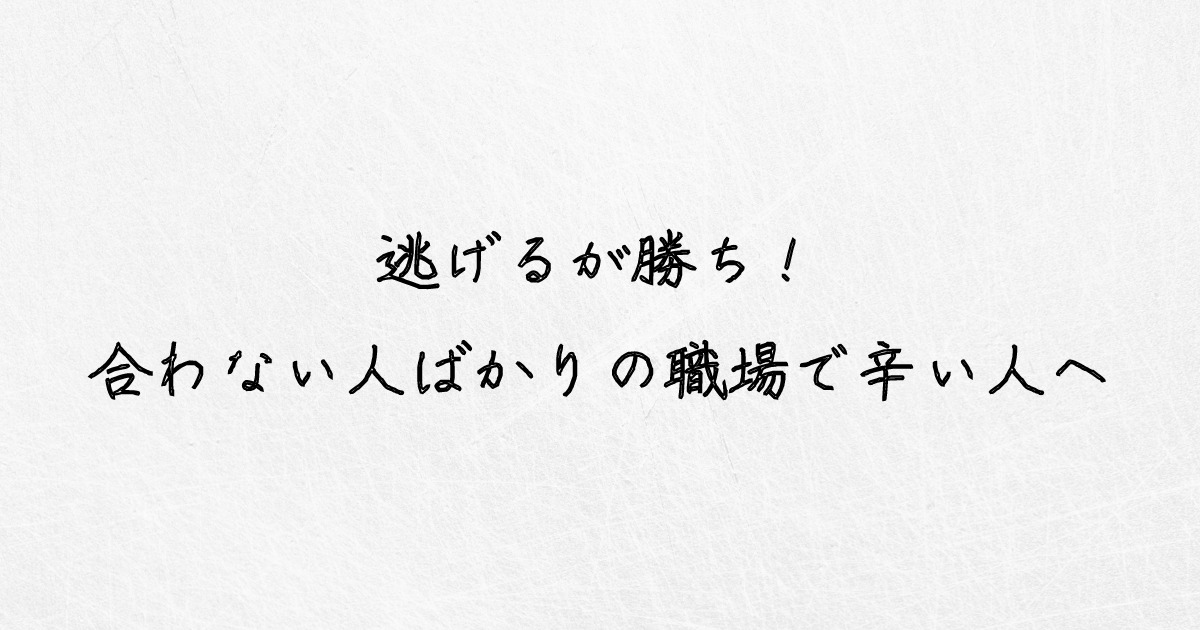 逃げるが勝ち！
合わない人ばかりの職場で辛い人へ